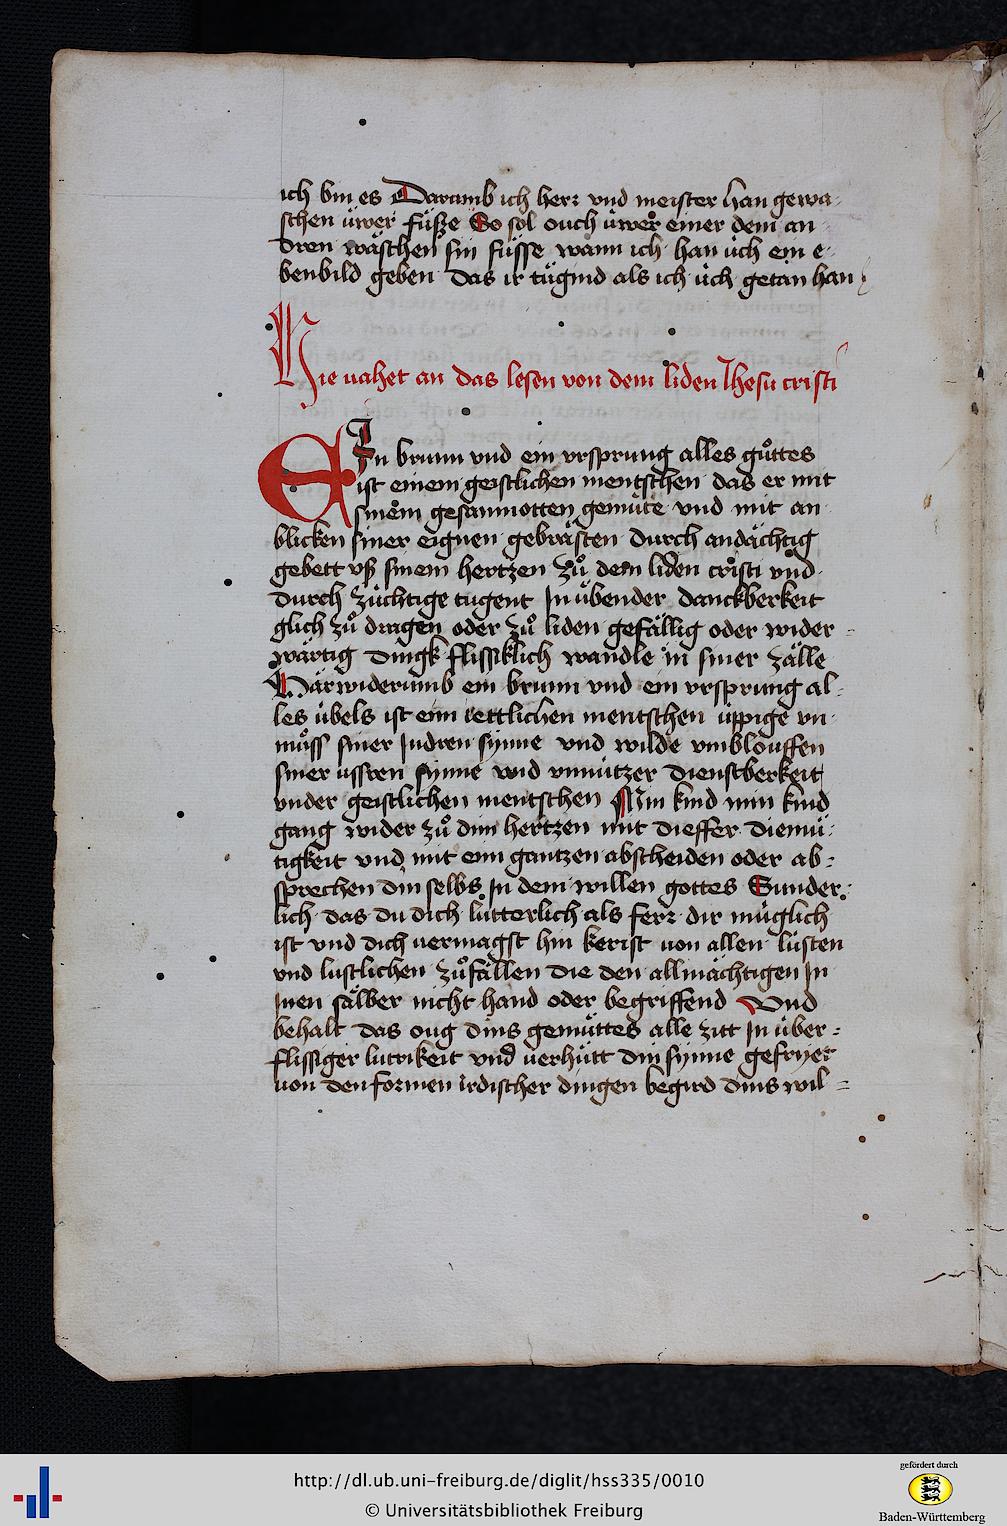 ich bin es Darumb ich herr vnd meister han gewa-
schen üwer füsze So sol ouch üwer einer dem an
dren wäschen sin füsse wann ich han üch ein e-
benbild geben das ir tügind als ich üch getan han
Hie vahet an das lesen von dem liden Jhesu cristi
EIn brunn vnd ein vrsprung alles gůttes
ist einem geistlichen mentschen das er mit
sinem gesammotten gemüte vnd mit an
blicken siner eignen gebrästen durch andächtig
gebett vß sinem hertzen zů dem liden cristi vnd
durch züchtige tugent In übender danckberkeit
glich zů dragen oder zů liden gefällig oder wider-
wärtig dingk flissiklich wandle in siner zälle
Härwiderumb ein brunn vnd ein vrsprung al-
les übels ist eim iettlichen mentschen üppige vn-
můss siner Indren synne vnd wilde vmblouffen
siner ussren synne vnd vnnützer dienstberkeit
vnder geistlichen mentschen Min kind min kind
gang wider zů dim hertzen mit dieffer diemü-
tigkeit vnd mit eim gantzen abscheiden oder ab-
sprechen din selbs in dem willen gottes Sunder-
lich das du dich lutterlich als ferr dir müglich
ist vnd dich vermagst hin kerist von allen lüsten
vnd lustlichen zůfällen die den allmächtigen In
Inen sälber nicht hand oder begriffend Vnd
behalt das oug dins gemüttes alle zitt In über-
flissiger lutrikeit vnd verhütt din synne gefryet
von den formen irdischer dingen begird dins wil-
http://dl.ub.uni-freiburg.de/diglit/hss335/0010
© Universitätsbibliothek Freiburg
gefördert durch
Baden-Württemberg